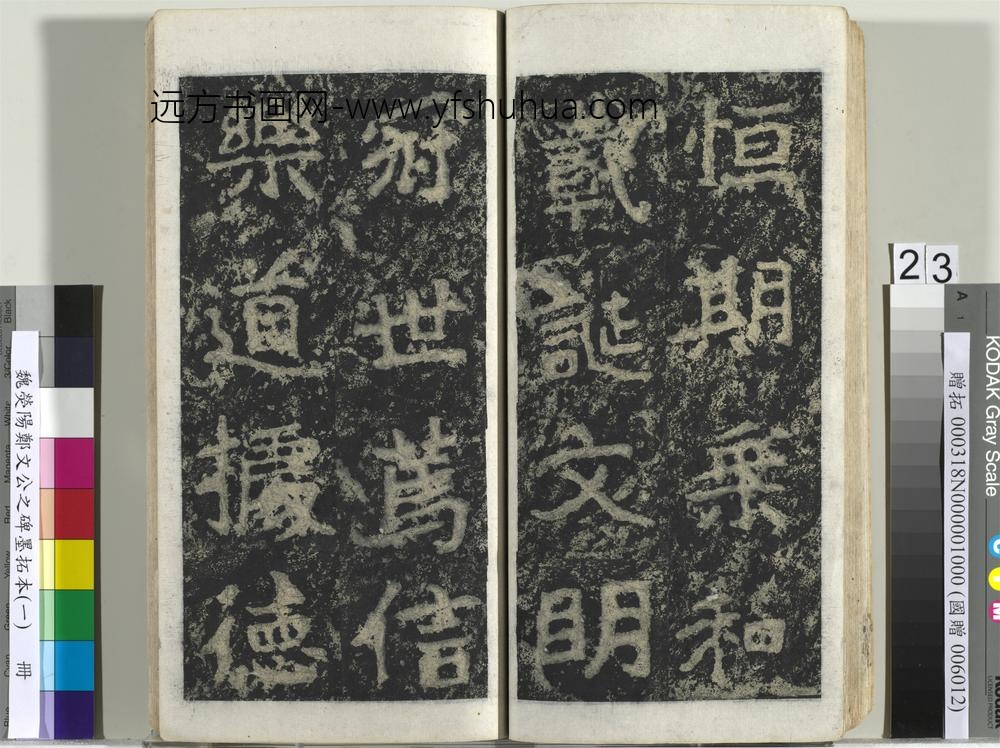 恒期乘和
載誕文明
冠世篤信
樂道據德
远方书画网-www.yfshuhua.com
23
贈拓 000318N000001000 (國贈 006012)
魏滎陽鄭文公之碑墨拓本(一) 冊
KODAK Gray Scale
A 1
C
Y
M
Kodak
LICENSED PRODUCT
Black
3/Color
White
Magenta
Red
Yellow
Green
Cyan
Blue